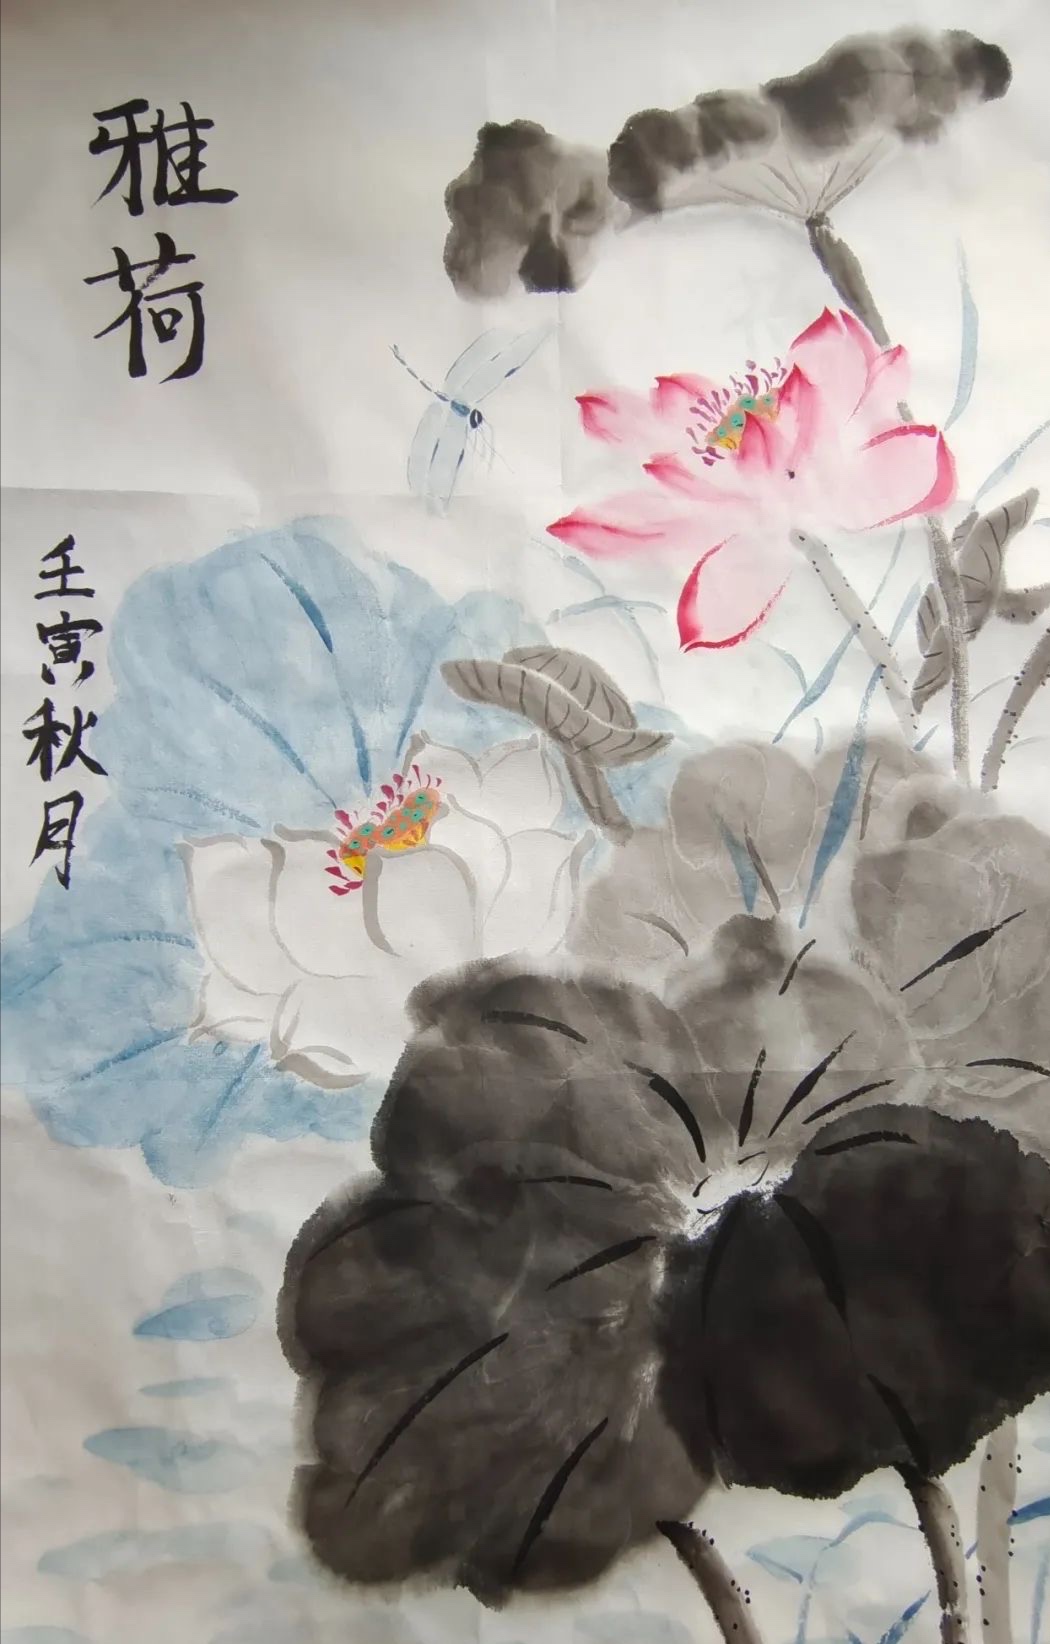 雅荷
壬寅秋月